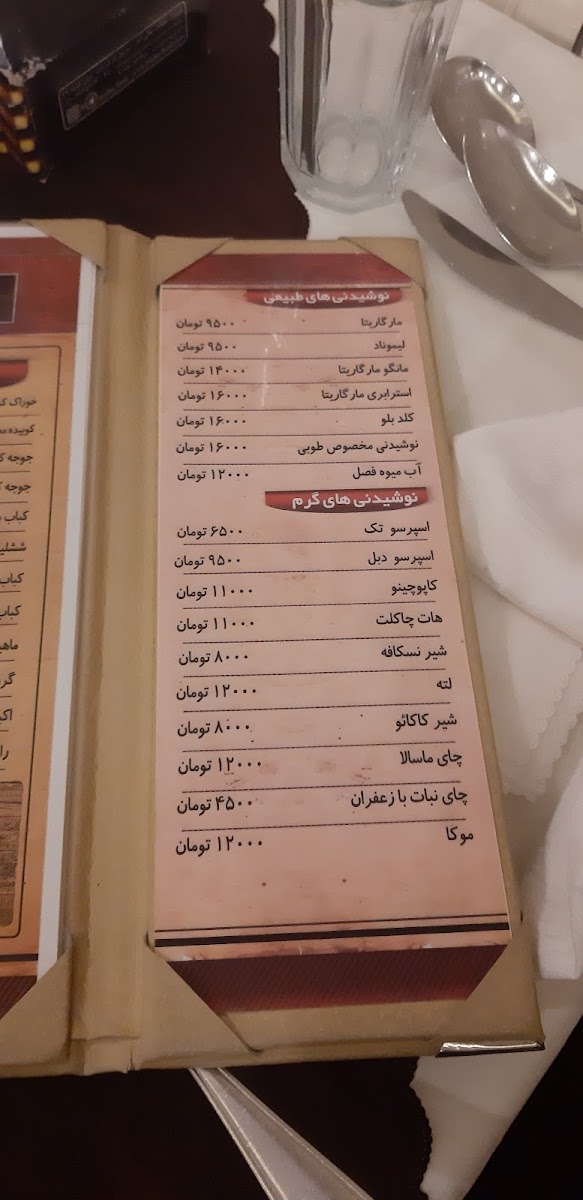 نوشیدنی های طبیعی
مارگاریتا ۹۵۰۰ تومان
لیموناد ۹۵۰۰ تومان
مانگو مارگاریتا ۱۴۰۰۰ تومان
استرابری مارگاریتا ۱۶۰۰۰ تومان
کلد بلو ۱۶۰۰۰ تومان
نوشیدنی مخصوص طوبی ۱۶۰۰۰ تومان
آب میوه فصل ۱۲۰۰۰ تومان
نوشیدنی های گرم
اسپرسو تک ۶۵۰۰ تومان
اسپرسو دبل ۹۵۰۰ تومان
کاپوچینو ۱۱۰۰۰ تومان
هات چاکلت ۱۱۰۰۰ تومان
شیر نسکافه ۸۰۰۰ تومان
لته ۱۲۰۰۰ تومان
شیر کاکائو ۸۰۰۰ تومان
چای ماسالا ۱۲۰۰۰ تومان
چای نبات با زعفران ۴۵۰۰ تومان
موکا ۱۲۰۰۰ تومان
خوراک
کوبیده
جوجه
جوجه
کباب
کباب
کباب